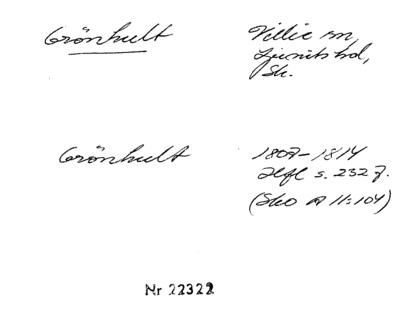 Grönhult Villie sn,
Ljunits hd,
Sk.
Grönhult 1807-1814
Hfl s. 232 f.
(Sko A II:104)
Nr 22322